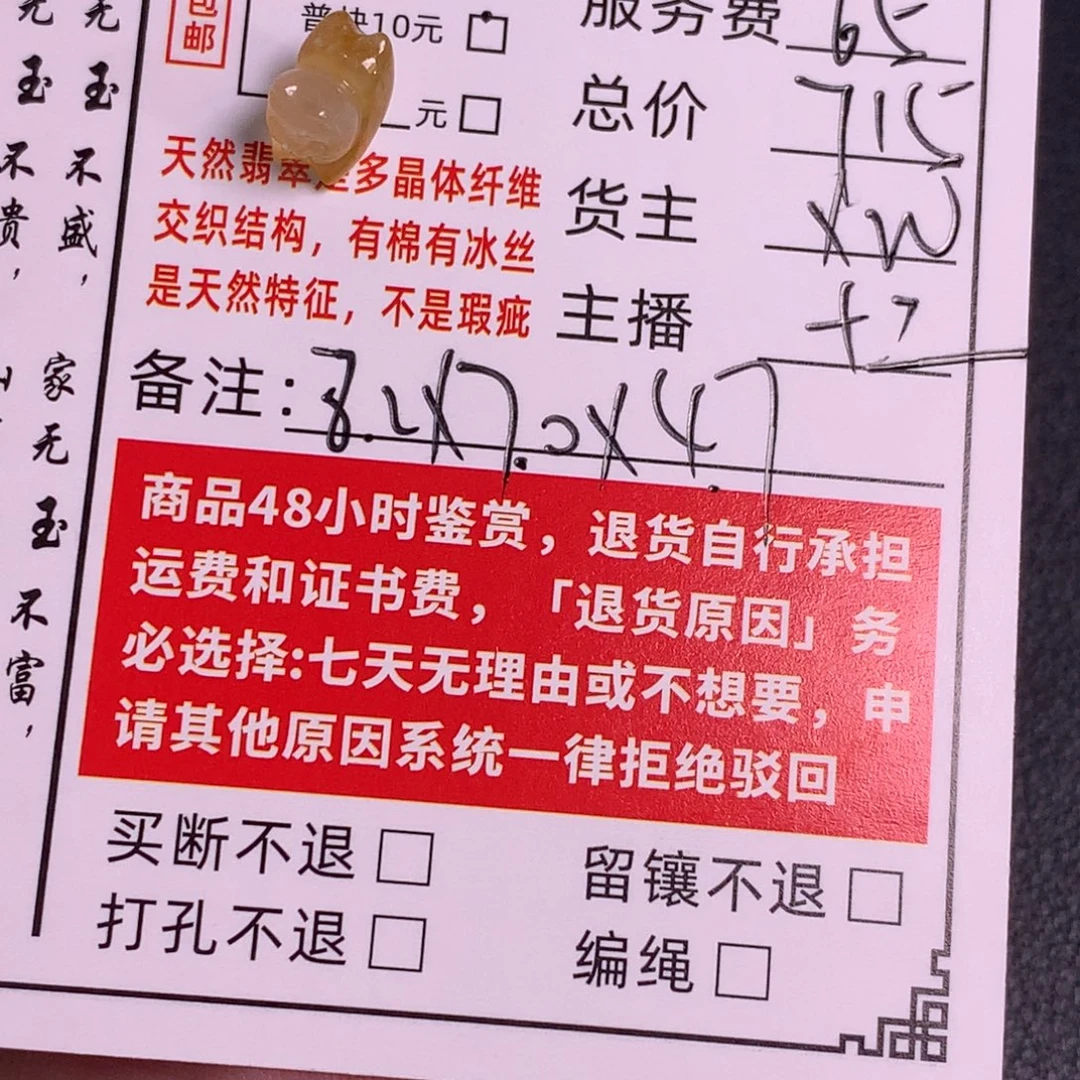 包邮
普快10元
服务费
元
总价
天然翡翠是多晶体纤维
交织结构，有棉有冰丝
是天然特征，不是瑕疵
货主
主播
备注：8.2X7.0X4.7
商品48小时鉴赏，退货自行承担
运费和证书费，「退货原因」务
必选择:七天无理由或不想要，申
请其他原因系统一律拒绝驳回
买断不退
留镶不退
打孔不退
编绳
玉不盛，
家无玉不富，
玉不贵，